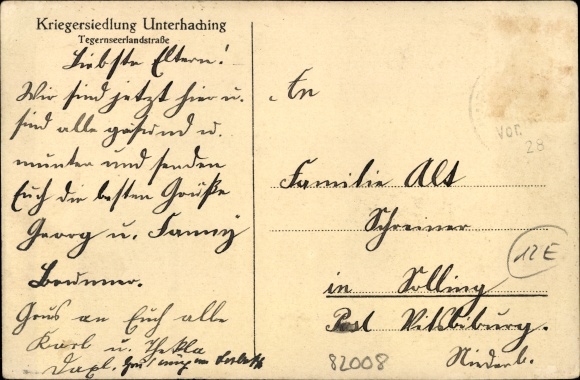 Kriegersiedlung Unterhaching
Tegernseerlandstraße
Liebste Eltern!
Wir sind jetzt hier u.
sind alle gesund u.
munter und senden
Euch die besten Grüße
Georg u. Fanny
Brunner.
Grus an Euch alle
Karl u. Thekla
Daxl.
An
Familie Alt
Schreiner
in Solling
Post Vilsbiburg.
Niederb.
vor.
28
12 E
82008